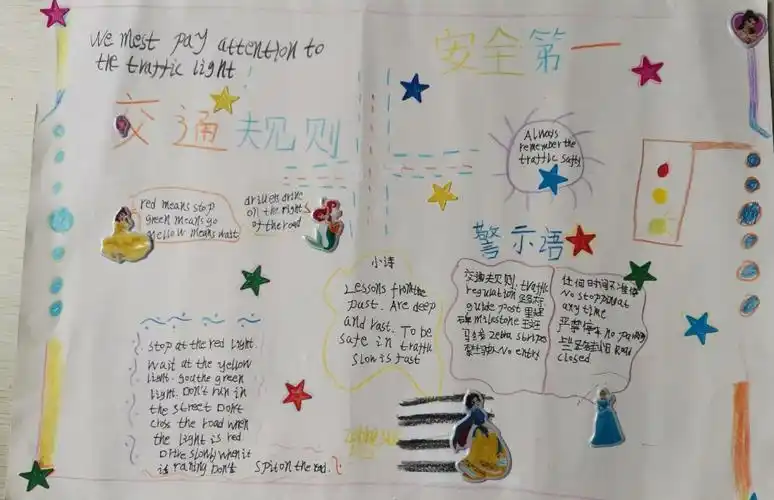 We most pay attention to
the traffic light
安全第一
交通规则
Always
remember the
traffic safty
red means stop
green means go
yellow means wait
drivers drive
on the right
of the road
警示语
小诗
Lessons from the
past. Are deep
and vast. To be
safe in traffic
slow is fast
交通规则: traffic
regulation 路标
guide post 里程
碑 milestone 斑
马线 zebra stripes
禁止驶入 No entry
任何时间不准停
No stopping at
any time
严禁停车 no parking
Road
closed.
stop at the red light.
wait at the yellow
light. gouthe green
light. Don't run in
the street Don't
cross the road when
the light is red
Drive slowly when it
is raning Don't spit on the